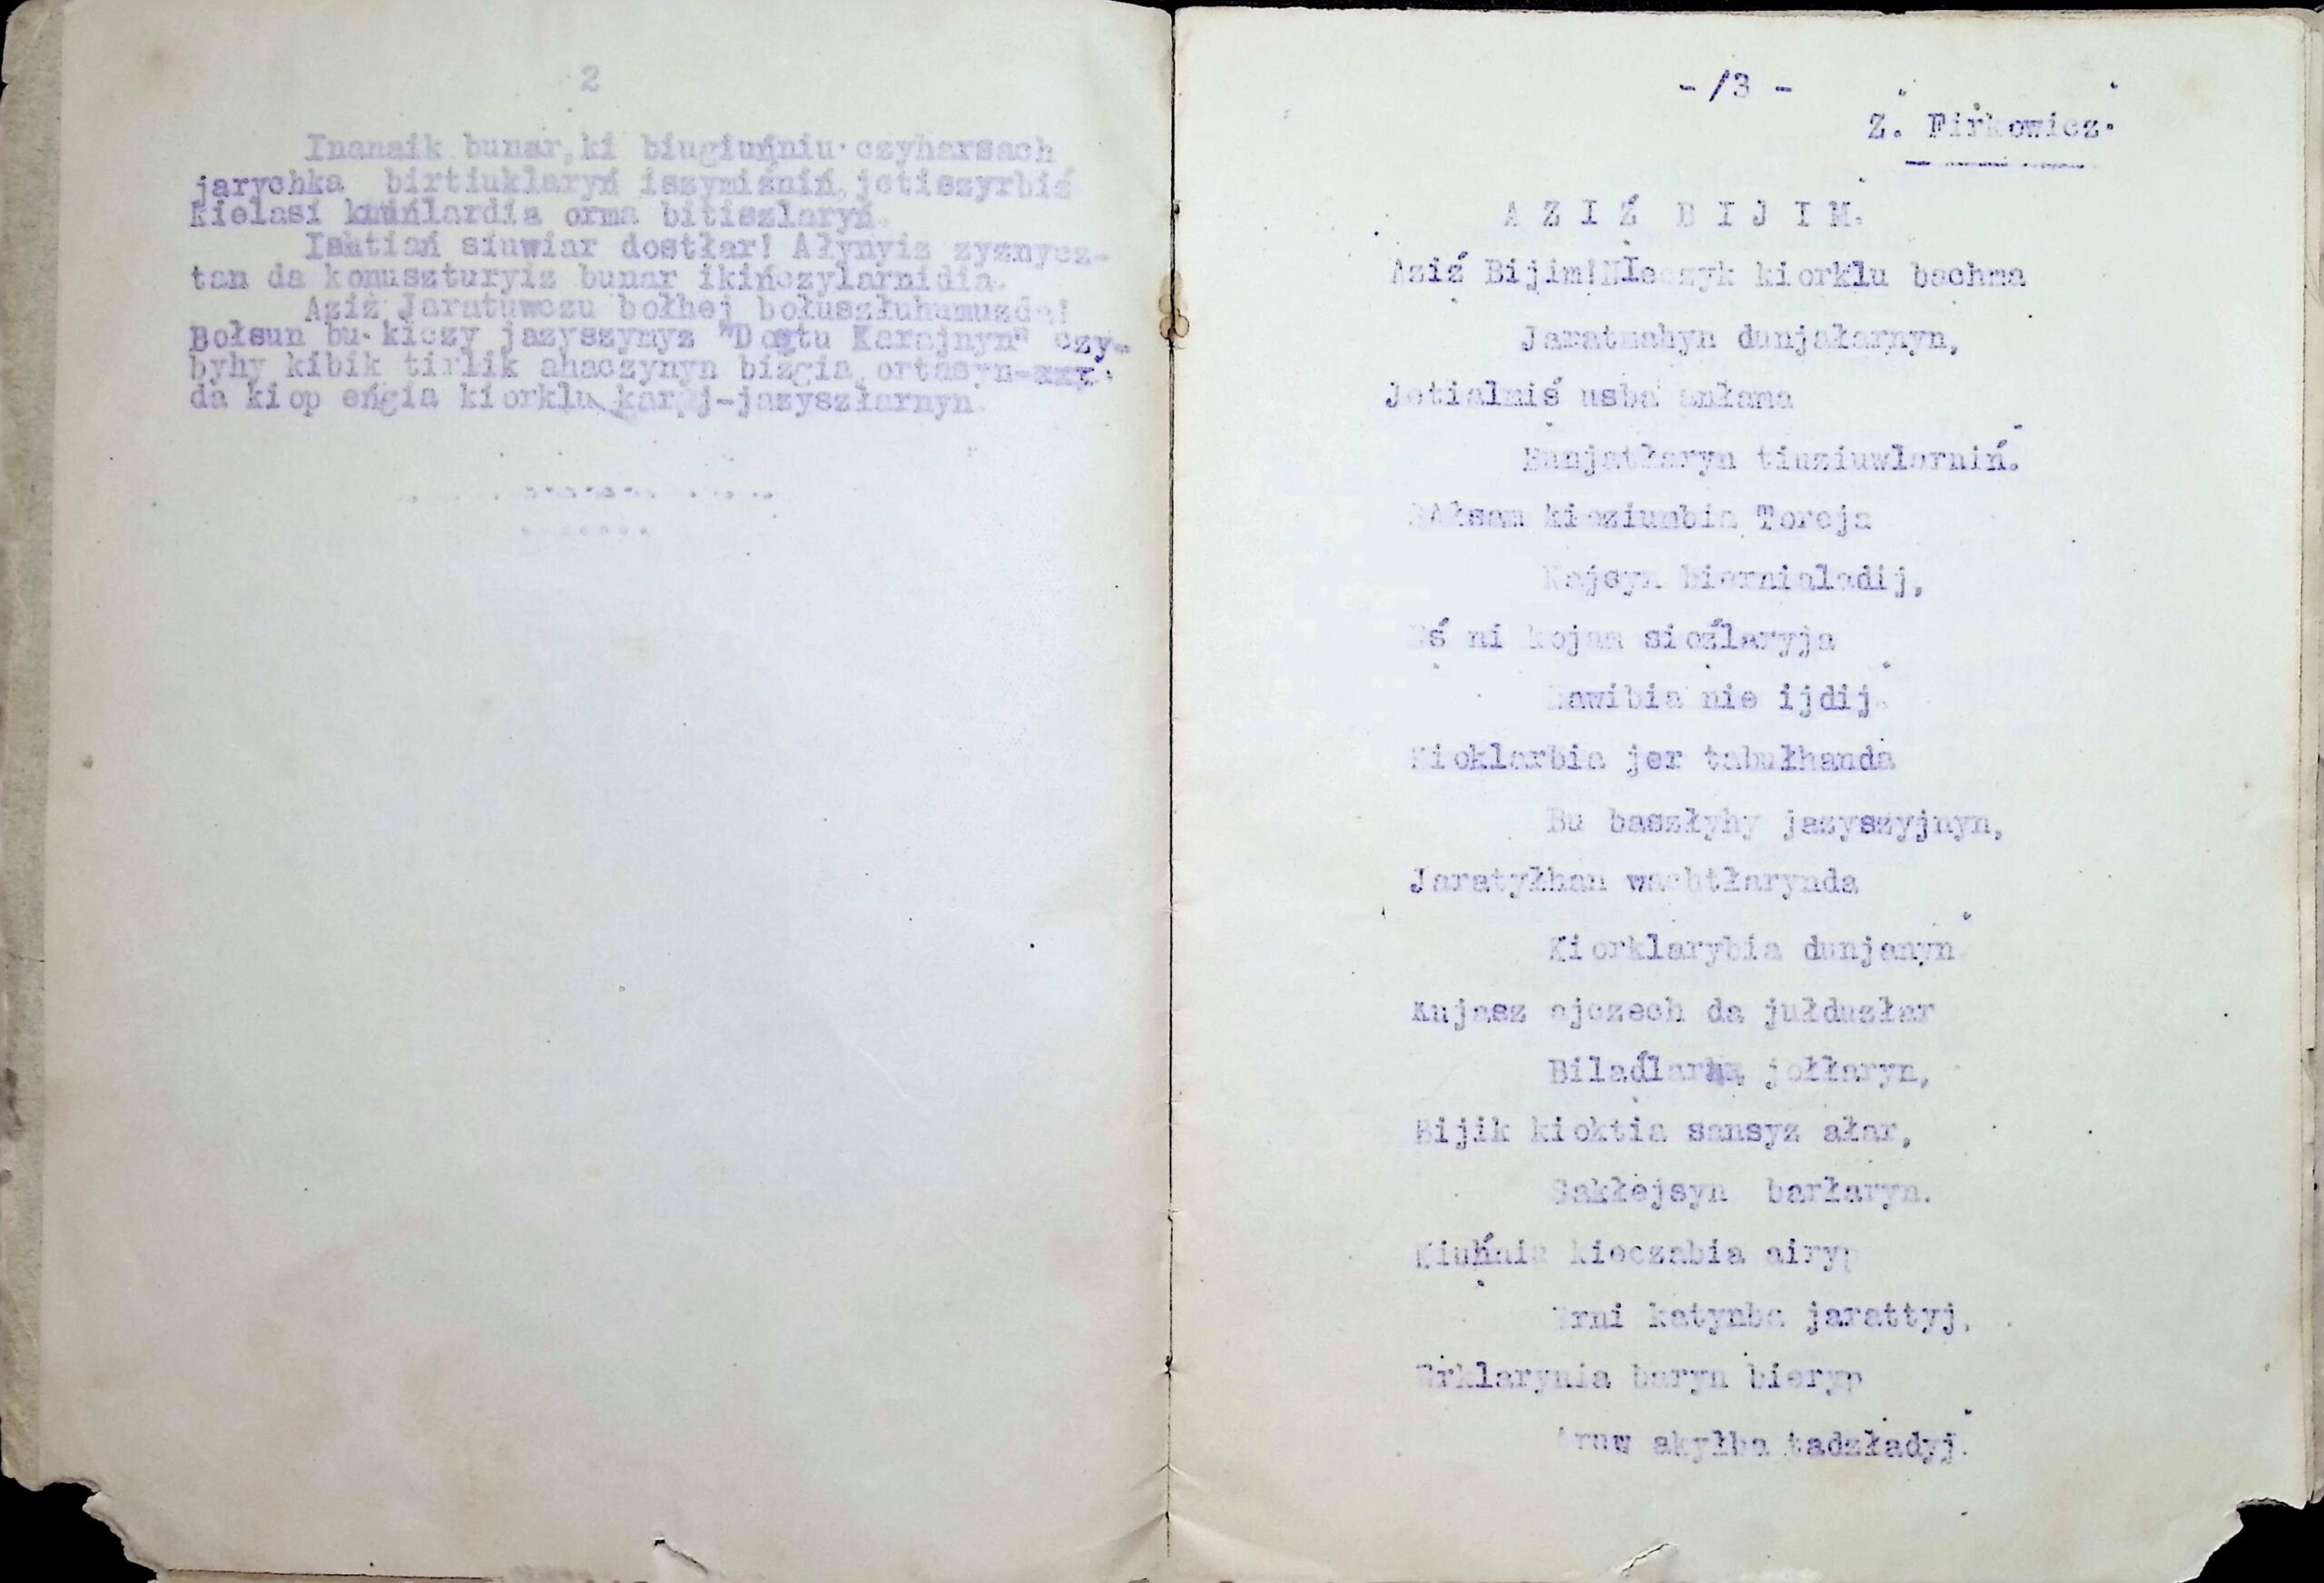 2
Inanaik bunar, ki biugiuńniu czyharsach
jarychka birtiuklaryń iszymiźniń, jetiszyrbiź
kielasi kiuńlardia orma bitiszlaryń.
Isztiań siuwiar dostłar! Ałynyiz zyznycz-
tan da konuszturyiz bunar ikińczylarnidia.
Aziź Jaratuwczu bołhej bołuszłuhumuzda!
Bołsun bu kiczy jazyszymyz "Dostu Karajnyn" czy-
byhy kibik tirlik ahaczynyn bizgia, ortasyn-
da kiop eńgia kiorklu karaj-jazyszłarnyn.
- /3 -
Z. Firkowicz.
A Z I Ź B I J I M.
Aziź Bijim! Nieczyk kiorklu bachma
Jaratmahyn dunjałarnyn,
Jetialmiś usba anłama
Hanjatłaryn tiuziuwlarniń.
Ałsam kioziumbia Toreja
Kajsyn biernialadij,
Eś ni kojam sioźlaryja
Nawibia nie ijdij.
Kioklarbia jer tabułhanda
Bu baszłyhy jazyszyjnyn,
Jaratyłhan wachtłarynda
Kiorklarybia dunjanyn
Kujasz ajczech da jułduzłar
Biladlar jołłaryn,
Bijik kioktia sansyz ałar,
Sakłejsyn barłaryn.
Kiuńniu kieczabia airyp
Erni katynba jarattyj,
Erklarynia baryn bieryp
Aruw akyłba tadzładyj.